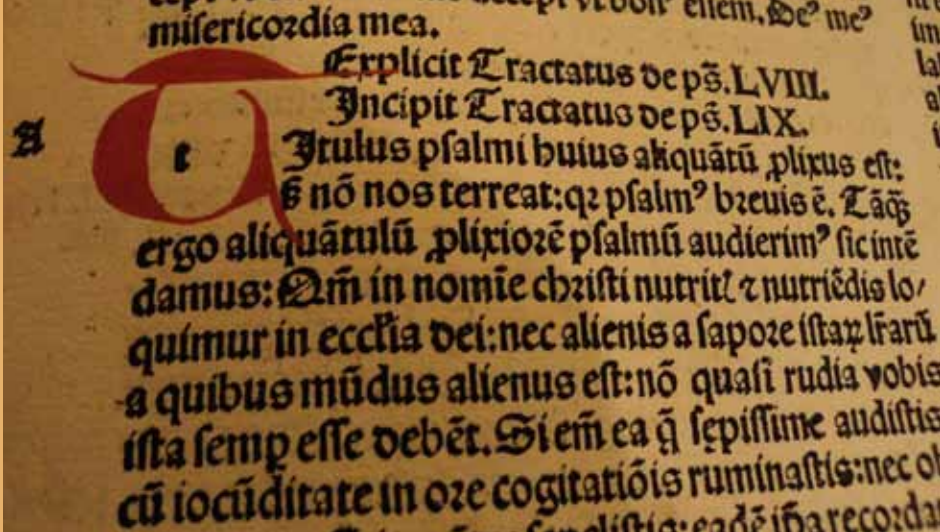 misericordia mea.
Explicit Tractatus de ps̄.LVIII.
Incipit Tractatus de ps̄.LIX.
A
t
Itulus psalmi huius aliquātū ꝓlixus est:
nō nos terreat:qꝛ psalmꝰ breuis ē. Tāꝙ̄
ergo aliquātulū ꝓlixiorē psalmū audierimꝰ sic intē
damus: Qm̄ in nomīe christi nutritꝭ ⁊ nutriēdis lo/
quimur in eccl̄ia dei: nec alienis a sapore istaꝝ l̄raꝝ
a quibus mūdus alienus est: nō quasi rudia vobis
ista semꝑ esse debēt. Si em̄ ea q̄ sępissime audistis
cū iocūditate in ore cogitatiōis ruminastis: nec